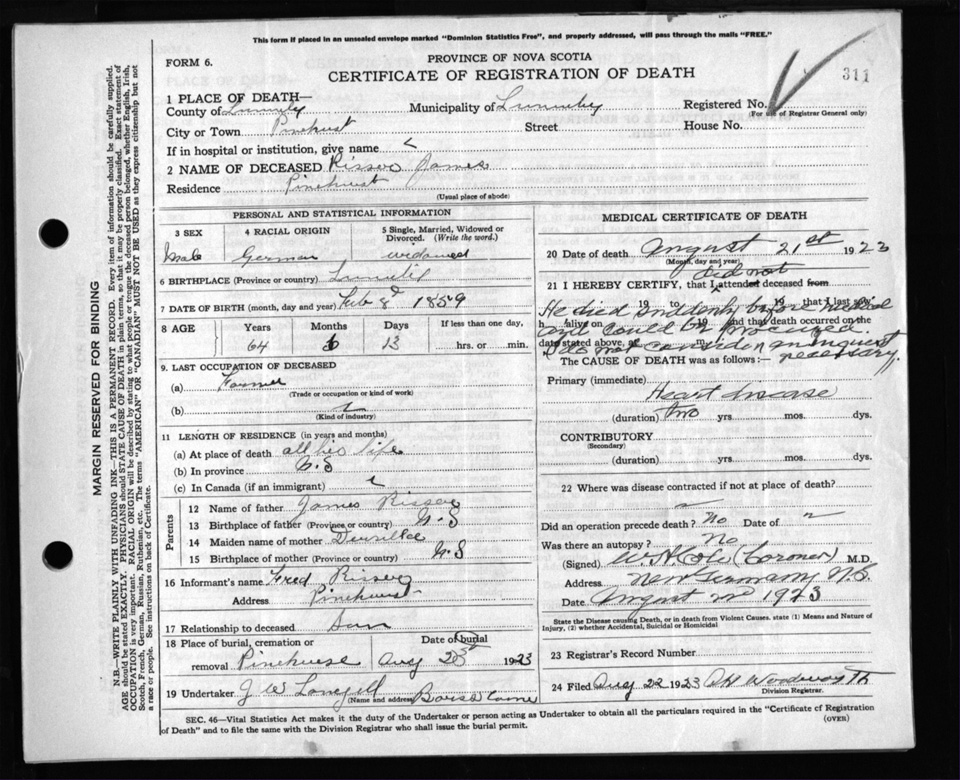 This form if placed in an unsealed envelope marked "Dominion Statistics Free", and properly addressed, will pass through the mails "FREE."
FORM 6.
PROVINCE OF NOVA SCOTIA
CERTIFICATE OF REGISTRATION OF DEATH
311
1 PLACE OF DEATH—
County of Lunenby Municipality of Lunenby Registered No.
(For use of Registrar General only)
City or Town Pinehurst Street House No.
If in hospital or institution, give name
2 NAME OF DECEASED Risser James
Residence Pinehurst
(Usual place of abode)
PERSONAL AND STATISTICAL INFORMATION
3 SEX 4 RACIAL ORIGIN 5 Single, Married, Widowed or Divorced. (Write the word.)
Male German widowed
6 BIRTHPLACE (Province or country)
7 DATE OF BIRTH (month, day and year) Feb 8 1859
8 AGE Years Months Days If less than one day,
64 6 13 hrs. or min.
9. LAST OCCUPATION OF DECEASED
(a) Farmer
(Trade or occupation or kind of work)
(b)
(Kind of industry)
11 LENGTH OF RESIDENCE (in years and months)
(a) At place of death all his life
(b) In province N.S
(c) In Canada (if an immigrant)
Parents
12 Name of father James Risser
13 Birthplace of father (Province or country) N.S
14 Maiden name of mother
15 Birthplace of mother (Province or country) N.S
16 Informant's name Fred Risser
Address Pinehurst
17 Relationship to deceased Son
18 Place of burial, cremation or removal Pinehurst
Date of burial Aug 23 1923
19 Undertaker J W
(Name and address)
MEDICAL CERTIFICATE OF DEATH
20 Date of death August 21st 1923
(Month, day and year)
did not
21 I HEREBY CERTIFY, that I attended deceased from
19 to 19 that I last saw
He died suddenly before medical
h alive on 19 and that death occurred on the
aid could be procured.
date stated above, at m.
I do not consider an inquest necessary.
The CAUSE OF DEATH was as follows:—
Primary (immediate)
Heart disease
(duration) Two yrs. mos. dys.
CONTRIBUTORY
(Secondary)
(duration) yrs. mos. dys.
22 Where was disease contracted if not at place of death?
Did an operation precede death? No Date of
Was there an autopsy? No
(Signed) W.H.Cole (Coroner) M.D.
Address New Germany N.S.
Date August 1923
State the Disease causing Death, or in death from Violent Causes. state (1) Means and Nature of Injury, (2) whether Accidental, Suicidal or Homicidal
23 Registrar's Record Number
24 Filed Aug 22 1923 Woodworth
Division Registrar.
SEC. 46—Vital Statistics Act makes it the duty of the Undertaker or person acting as Undertaker to obtain all the particulars required in the "Certificate of Registration of Death" and to file the same with the Division Registrar who shall issue the burial permit.
(OVER)
MARGIN RESERVED FOR BINDING
N.B.—WRITE PLAINLY WITH UNFADING INK—THIS IS A PERMANENT RECORD. Every item of information should be carefully supplied.
AGE should be stated EXACTLY. PHYSICIANS should STATE CAUSE OF DEATH in plain terms, so that it may be properly classified. Exact statement of
OCCUPATION is very important. RACIAL ORIGIN will be described by stating to what people or tongue the deceased person belonged, whether English, Irish,
Scotch, French, German, Russian, Ruthenian, etc. The terms "AMERICAN" OR "CANADIAN" MUST NOT BE USED as they express citizenship but not
a race or people. See instructions on back of Certificate.